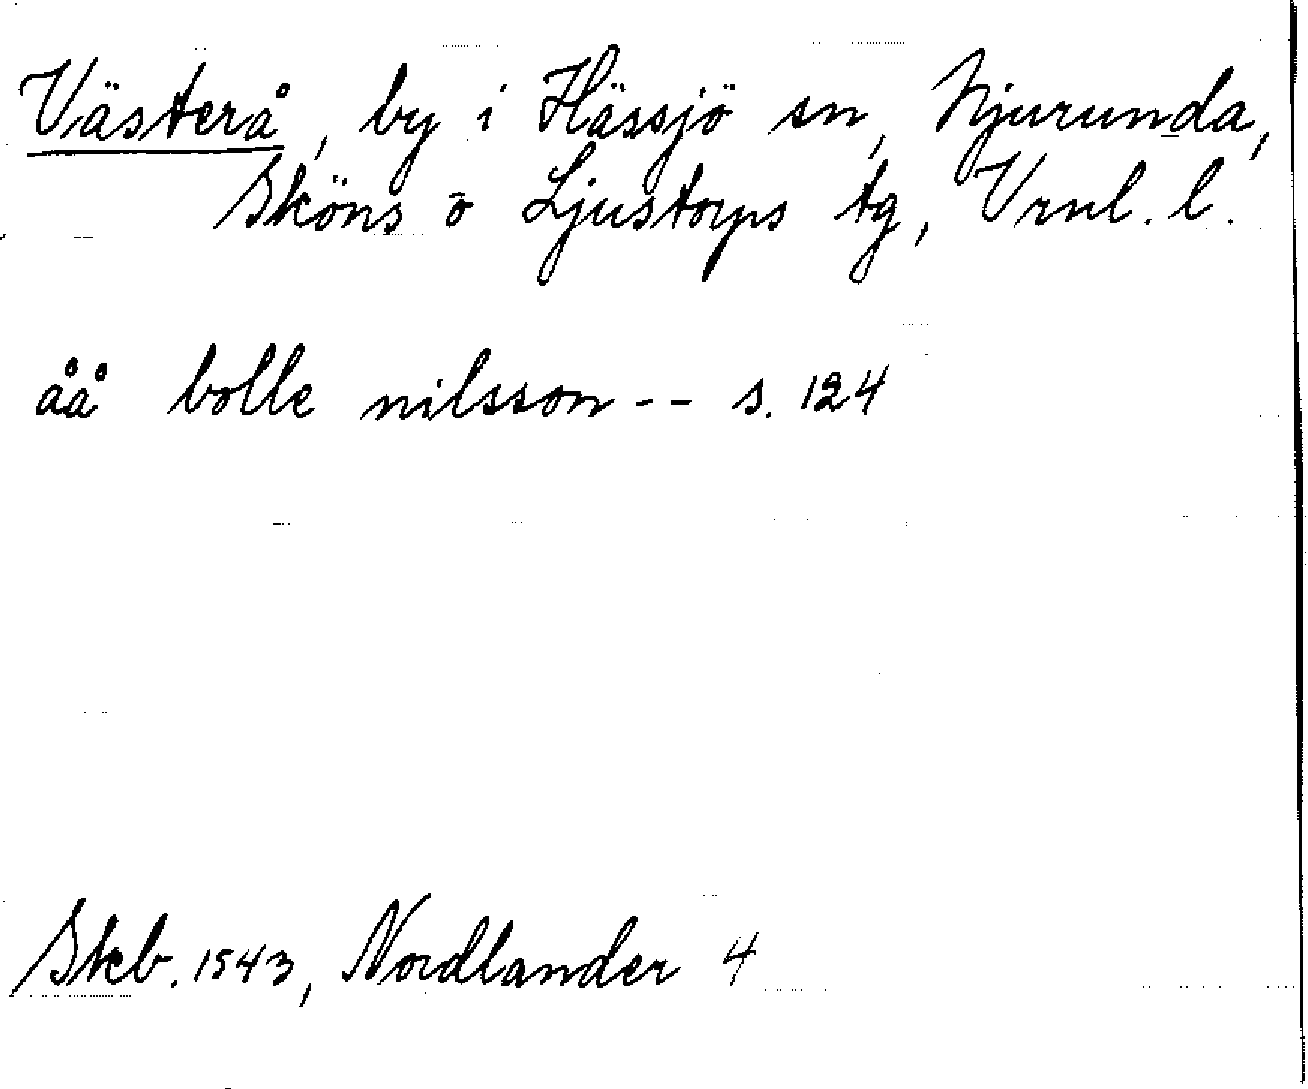 Västerå, by i Hässjö sn, Njurunda,
Sköns o Ljustorps tg, Vrnl. l.
åå bolle nilsson -- s. 124
Skb. 1543, Nordlander 4